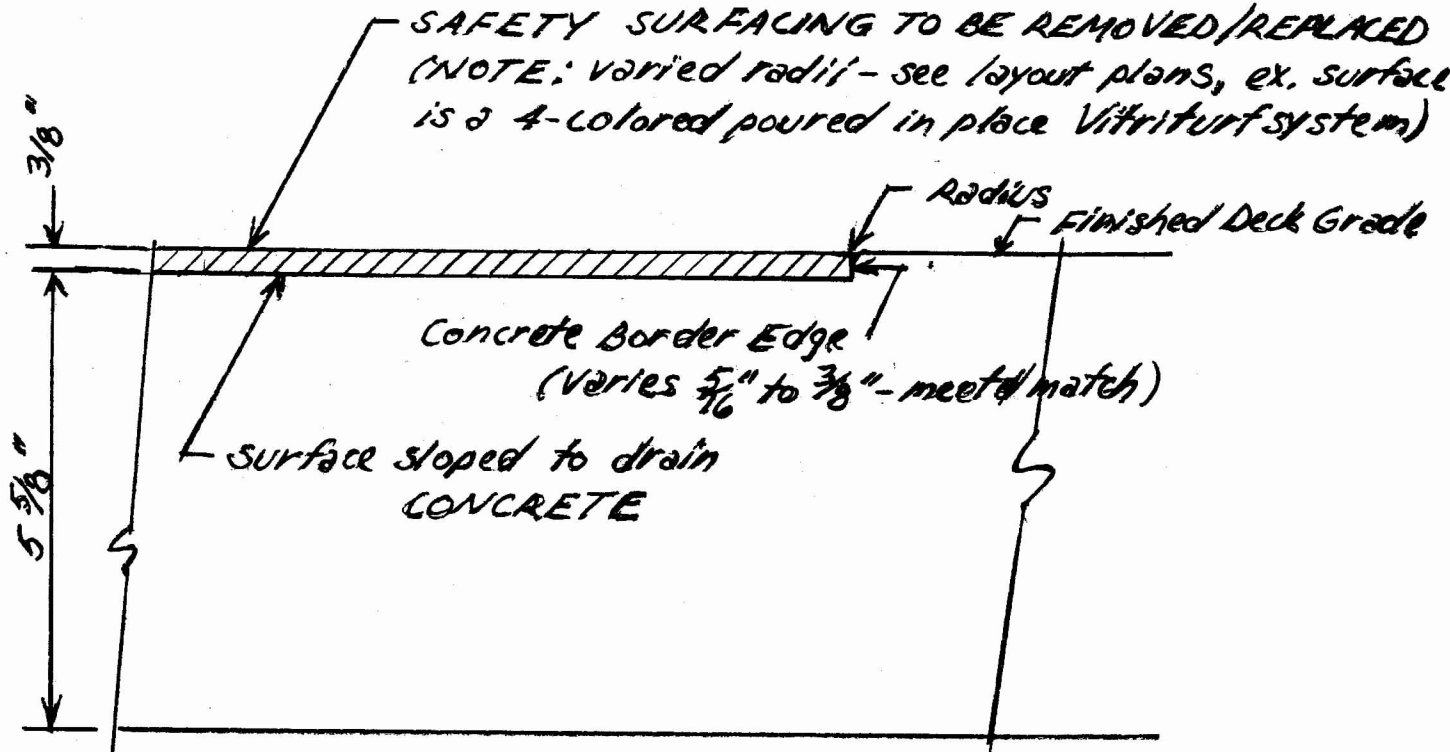 SAFETY SURFACING TO BE REMOVED/REPLACED
(NOTE: varied radii - see layout plans, ex. surface
is a 4-colored poured in place Vitriturf system)
3/8"
Radius
Finished Deck Grade
Concrete Border Edge
(varies 5/16" to 3/8" - meet/match)
surface sloped to drain
CONCRETE
5 5/8"